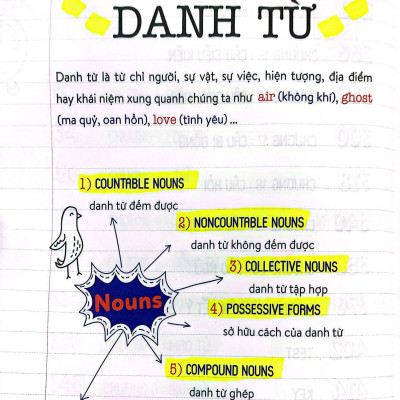 DANH TỪ
Danh từ là từ chỉ người, sự vật, sự việc, hiện tượng, địa điểm
hay khái niệm xung quanh chúng ta như air (không khí), ghost
(ma quỷ, oan hồn), love (tình yêu) ...
1) COUNTABLE NOUNS
danh từ đếm được
2) NONCOUNTABLE NOUNS
danh từ không đếm được
3) COLLECTIVE NOUNS
danh từ tập hợp
Nouns
4) POSSESSIVE FORMS
sở hữu cách của danh từ
5) COMPOUND NOUNS
danh từ ghép